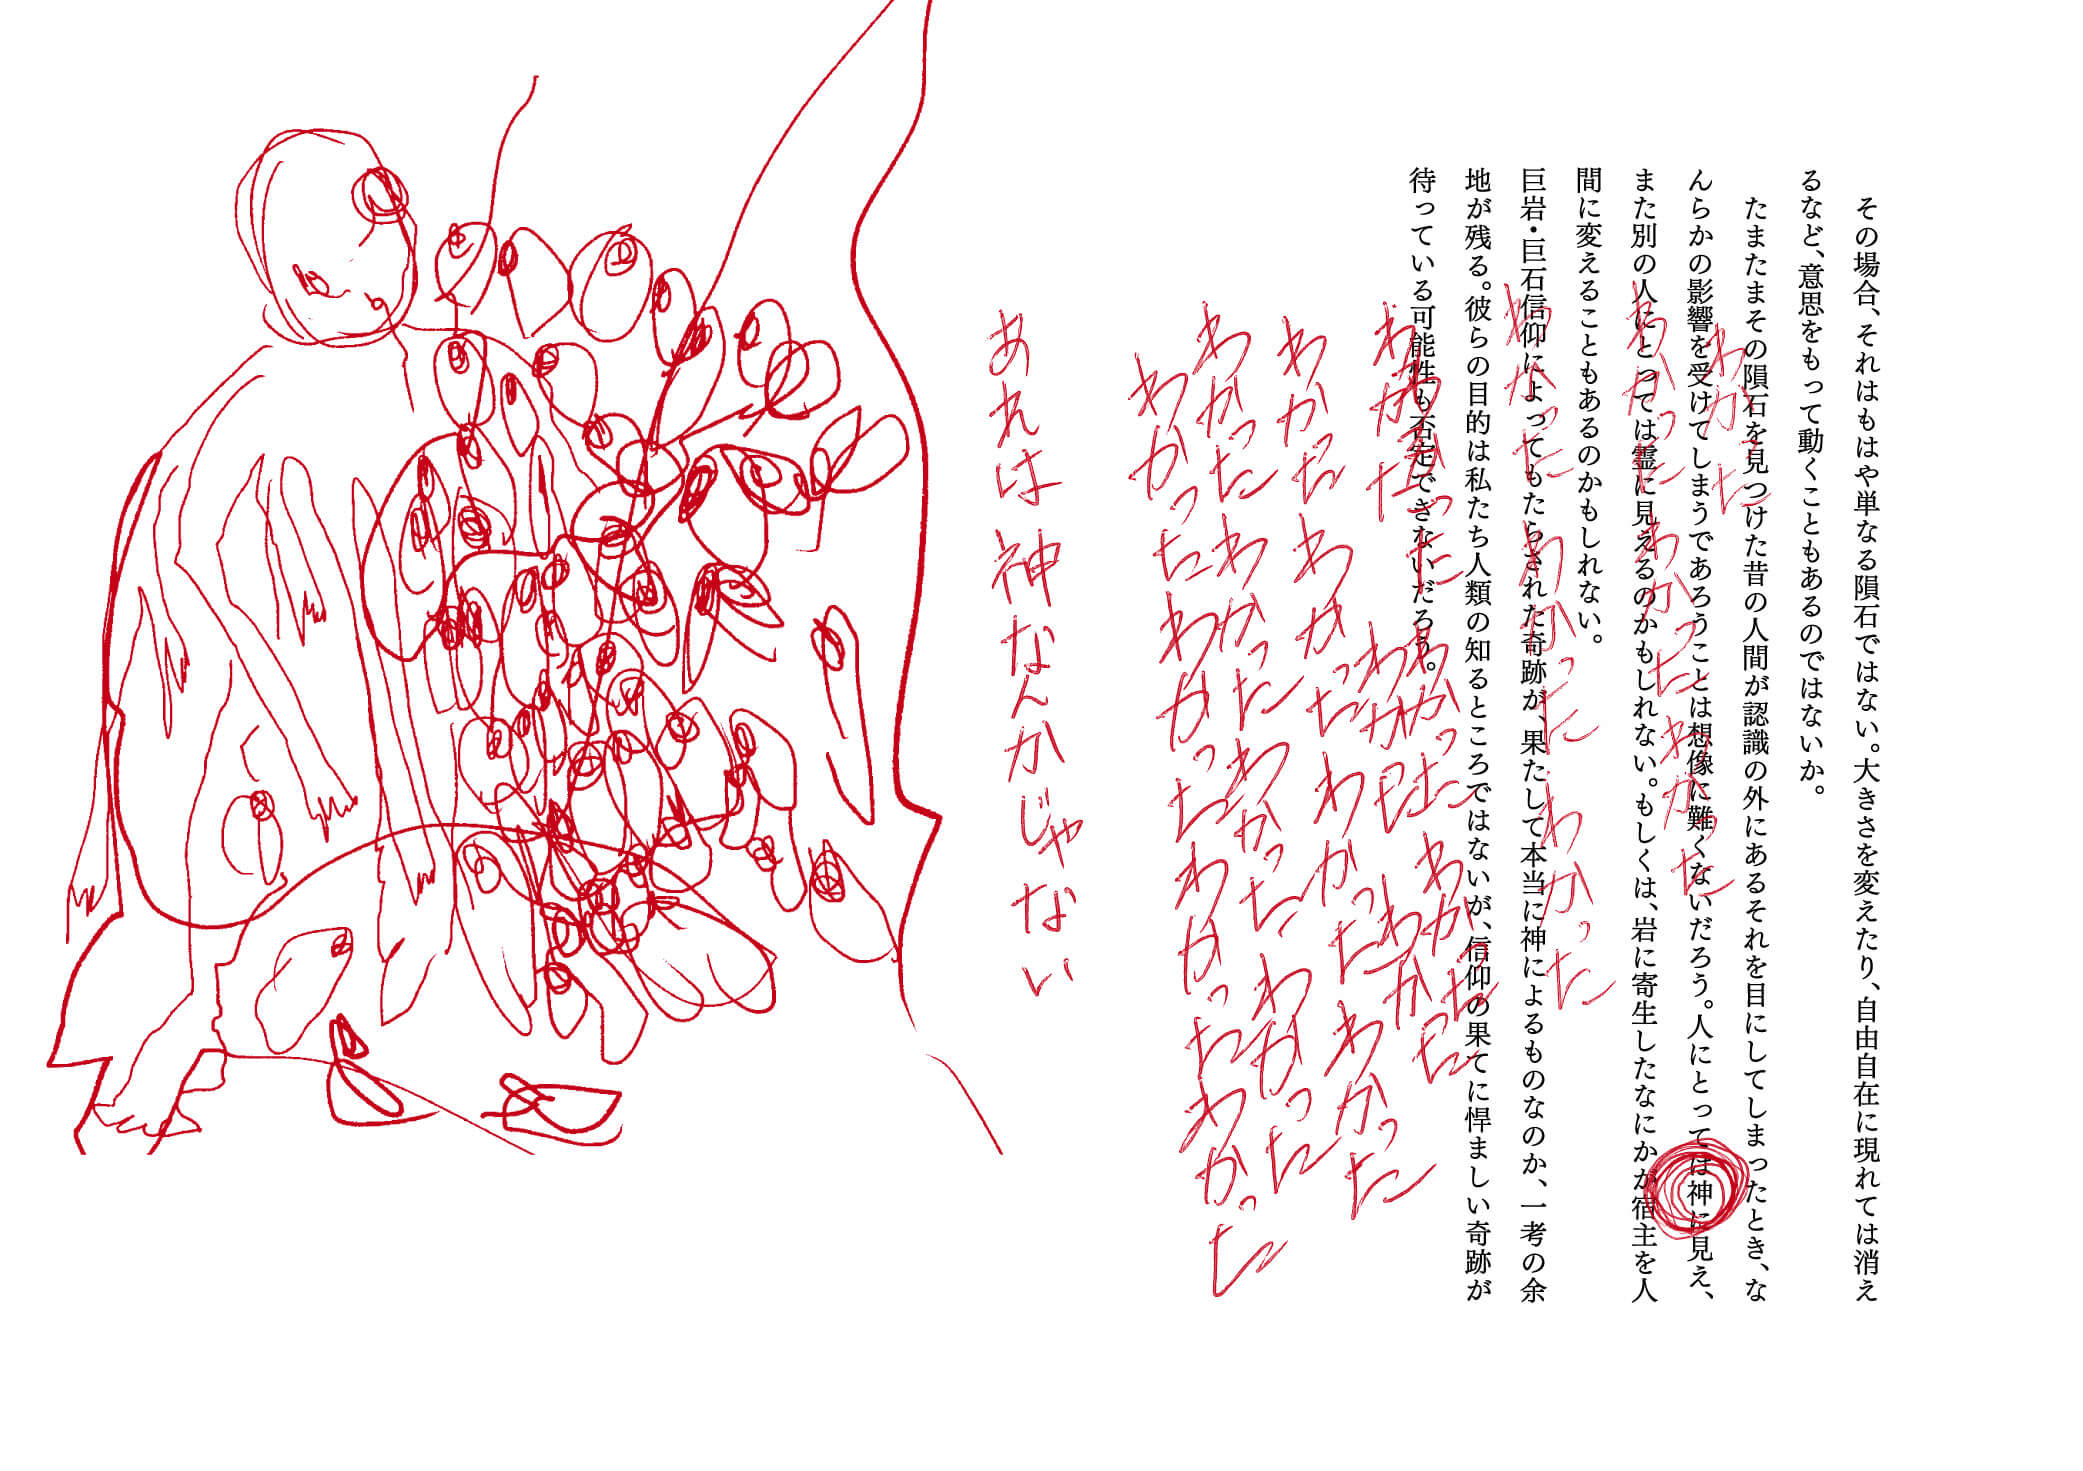 その場合、それはもはや単なる隕石ではない。大きさを変えたり、自由自在に現れては消え
るなど、意思をもって動くこともあるのではないか。
たまたまその隕石を見つけた昔の人間が認識の外にあるそれを目にしてしまったとき、な
んらかの影響を受けてしまうであろうことは想像に難くないだろう。人にとっては神に見え、
また別の人にとっては霊に見えるのかもしれない。もしくは、岩に寄生したなにかが宿主を人
間に変えることもあるのかもしれない。
巨岩・巨石信仰によってもたらされた奇跡が、果たして本当に神によるものなのか、一考の余
地が残る。彼らの目的は私たち人類の知るところではないが、信仰の果てに悍ましい奇跡が
待っている可能性も否定できないだろう。
わかった
わかったわかったわかった
わかったわかったわかった
わかったわかったわかった
わかったわかったわかった
わかったわかったわかったわかった
わかったわかったわかったわかった
わかったわかったわかったわかった
あれは神なんかじゃない